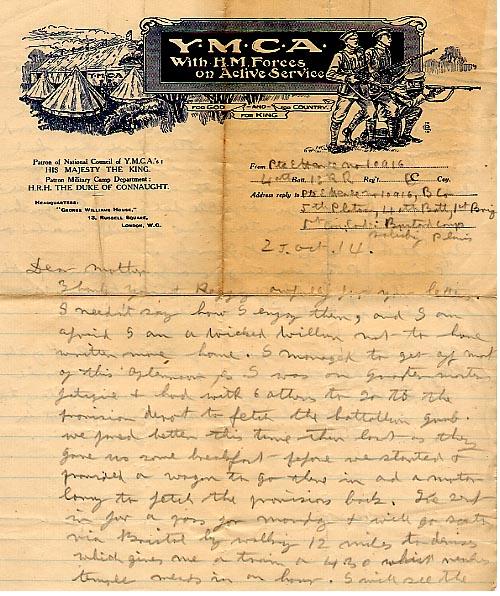 Y.M.C.A.
With H.M. Forces
on Active Service
FOR GOD AND FOR COUNTRY
FOR KING
Patron of National Council of Y.M.C.A.'s:
HIS MAJESTY THE KING.
Patron Military Camp Department:
H.R.H. THE DUKE OF CONNAUGHT.
HEADQUARTERS:
"GEORGE WILLIAMS HOUSE,"
13, RUSSELL SQUARE,
LONDON, W.C.
From Pte no 10916
Batt. Reg't. Coy.
Address reply to Pte no 10916, B Co
5th Platoon, Batt, 1st Brig
Bustard Camp
Salisbury Plains
25 Oct. 14.
Dear Mother
Thank you & awfully for your letters.
I needn't say how I enjoy them, and I am
afraid I am a wicked villian not to have
written more home. I managed to get off most
of this afternoon as I was on quarter masters
fatigue & had with 6 others to go to the
provision depot to fetch the battalion grub.
We fared better this time than last as they
gave us some breakfast before we started &
provided a wagon to go there in and a motor
lorry to fetch the provisions back. I've sent
in for a pass for monday & will go
via Bristol by walking 12 miles to devizes
which gives me a train a 4 30 which reaches
temple meads in an hour. I will see the